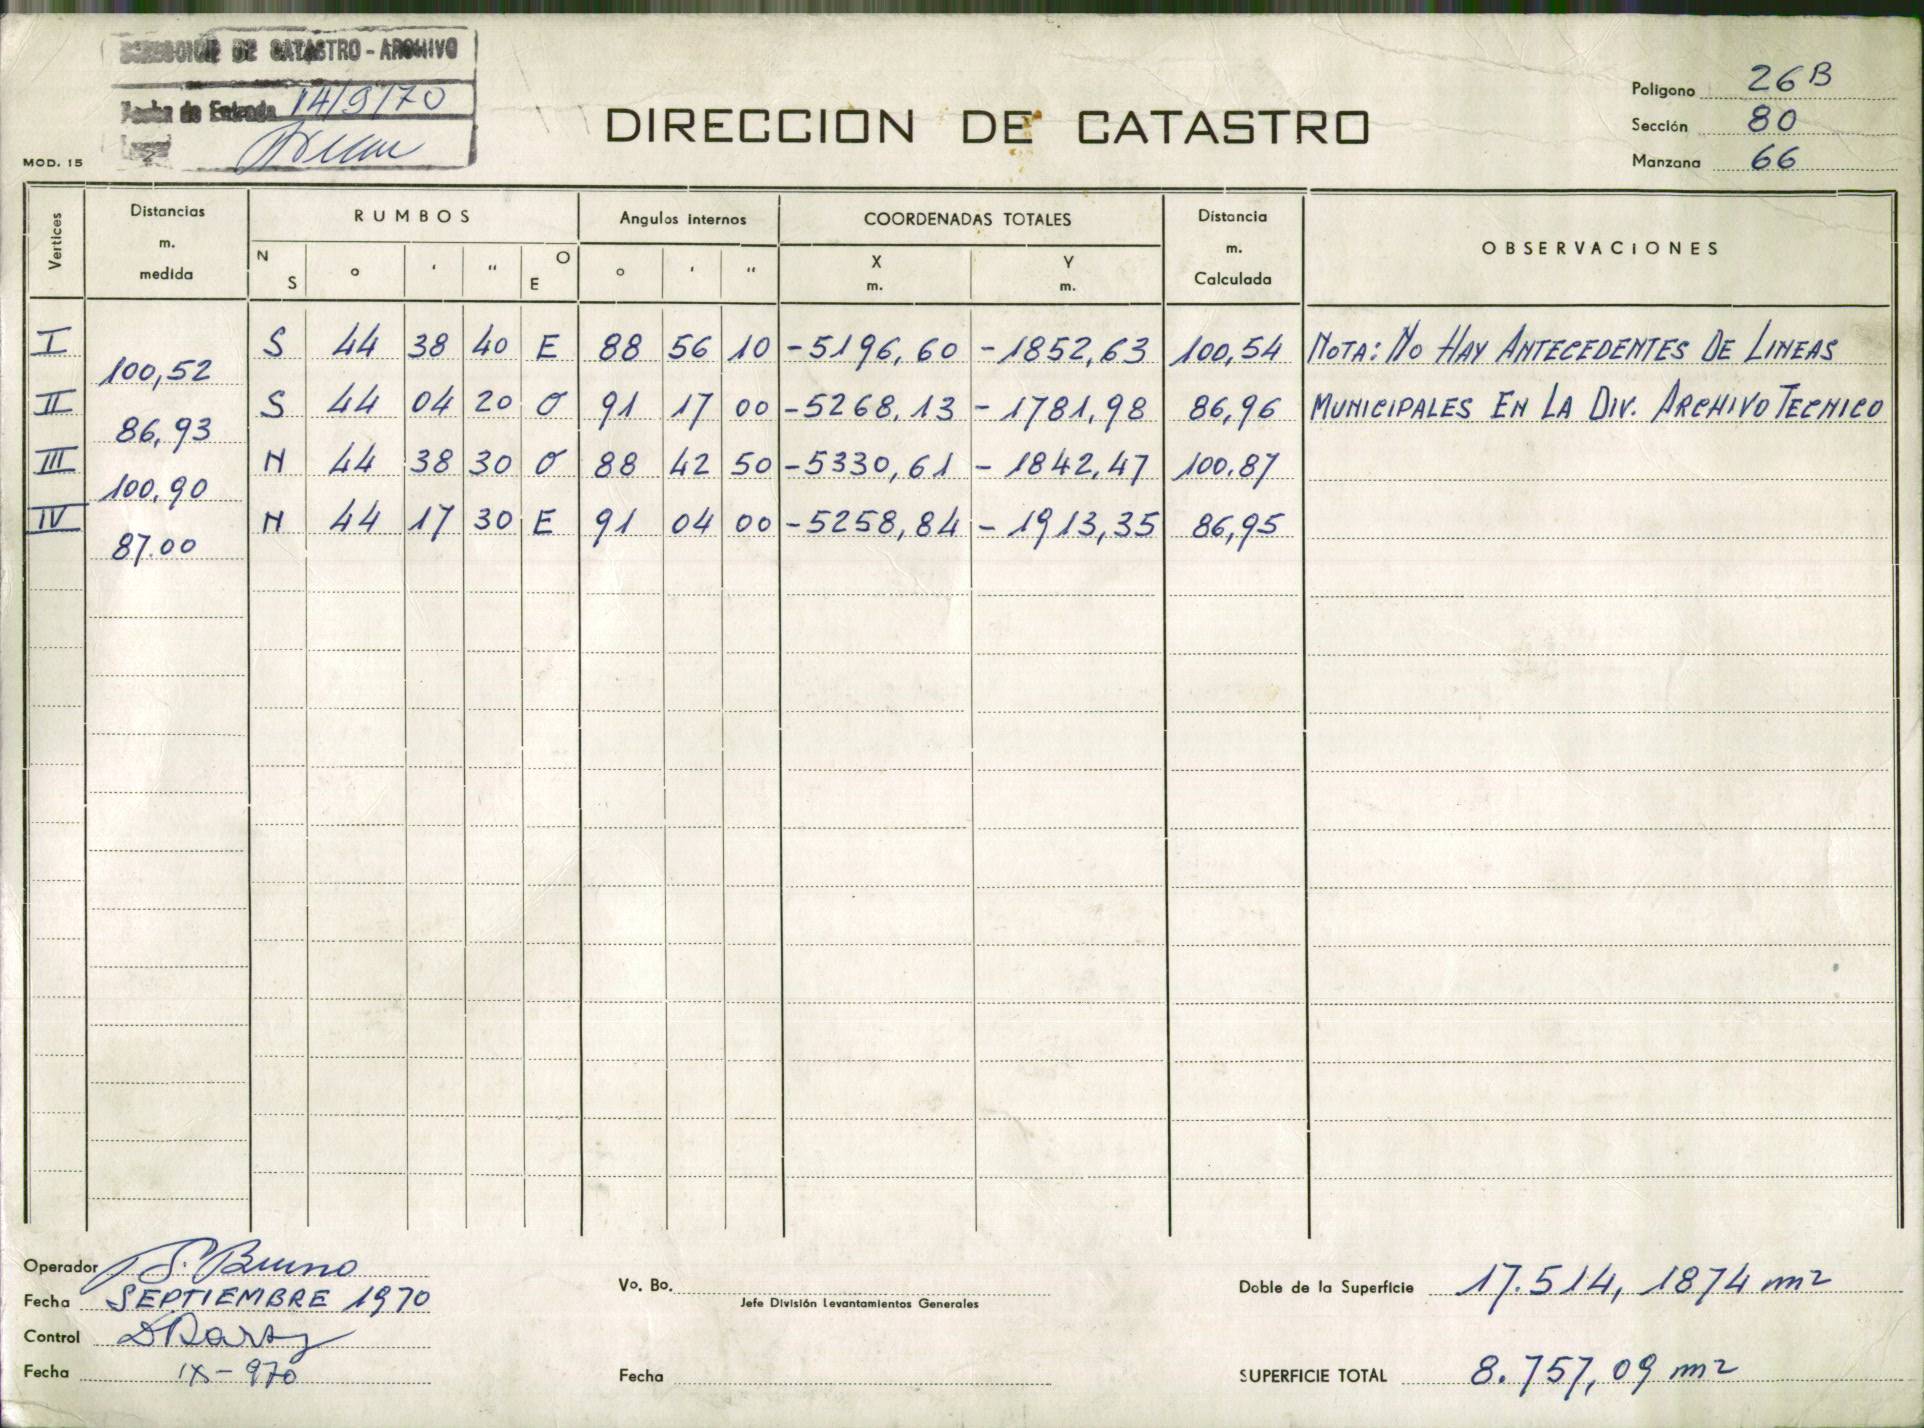 DIRECCION DE CATASTRO - ARCHIVO
Fecha de Entrada 14/9/70
MOD. 15
DIRECCION DE CATASTRO
Poligono 26 B
Sección 80
Manzana 66
Vertices
Distancias
m.
medida
RUMBOS
N S ° ' " O E
Angulos internos
° ' "
COORDENADAS TOTALES
X
m.
Y
m.
Distancia
m.
Calculada
OBSERVACIONES
I S 44 38 40 E 88 56 10 -5196,60 -1852,63 100,54 NOTA: NO HAY ANTECEDENTES DE LINEAS
100,52
II S 44 04 20 O 91 17 00 -5268,13 -1781,98 86,96 MUNICIPALES EN LA DIV. ARCHIVO TECNICO
86,93
III N 44 38 30 O 88 42 50 -5330,61 -1842,47 100.87
100,90
IV N 44 17 30 E 91 04 00 -5258,84 -1913,35 86,95
87.00
Operador S. Bruno
Fecha SEPTIEMBRE 1970
Control
Fecha IX-970
Vo. Bo.
Jefe División Levantamientos Generales
Fecha
Doble de la Superficie 17.514,1874 m2
SUPERFICIE TOTAL 8.757,09 m2